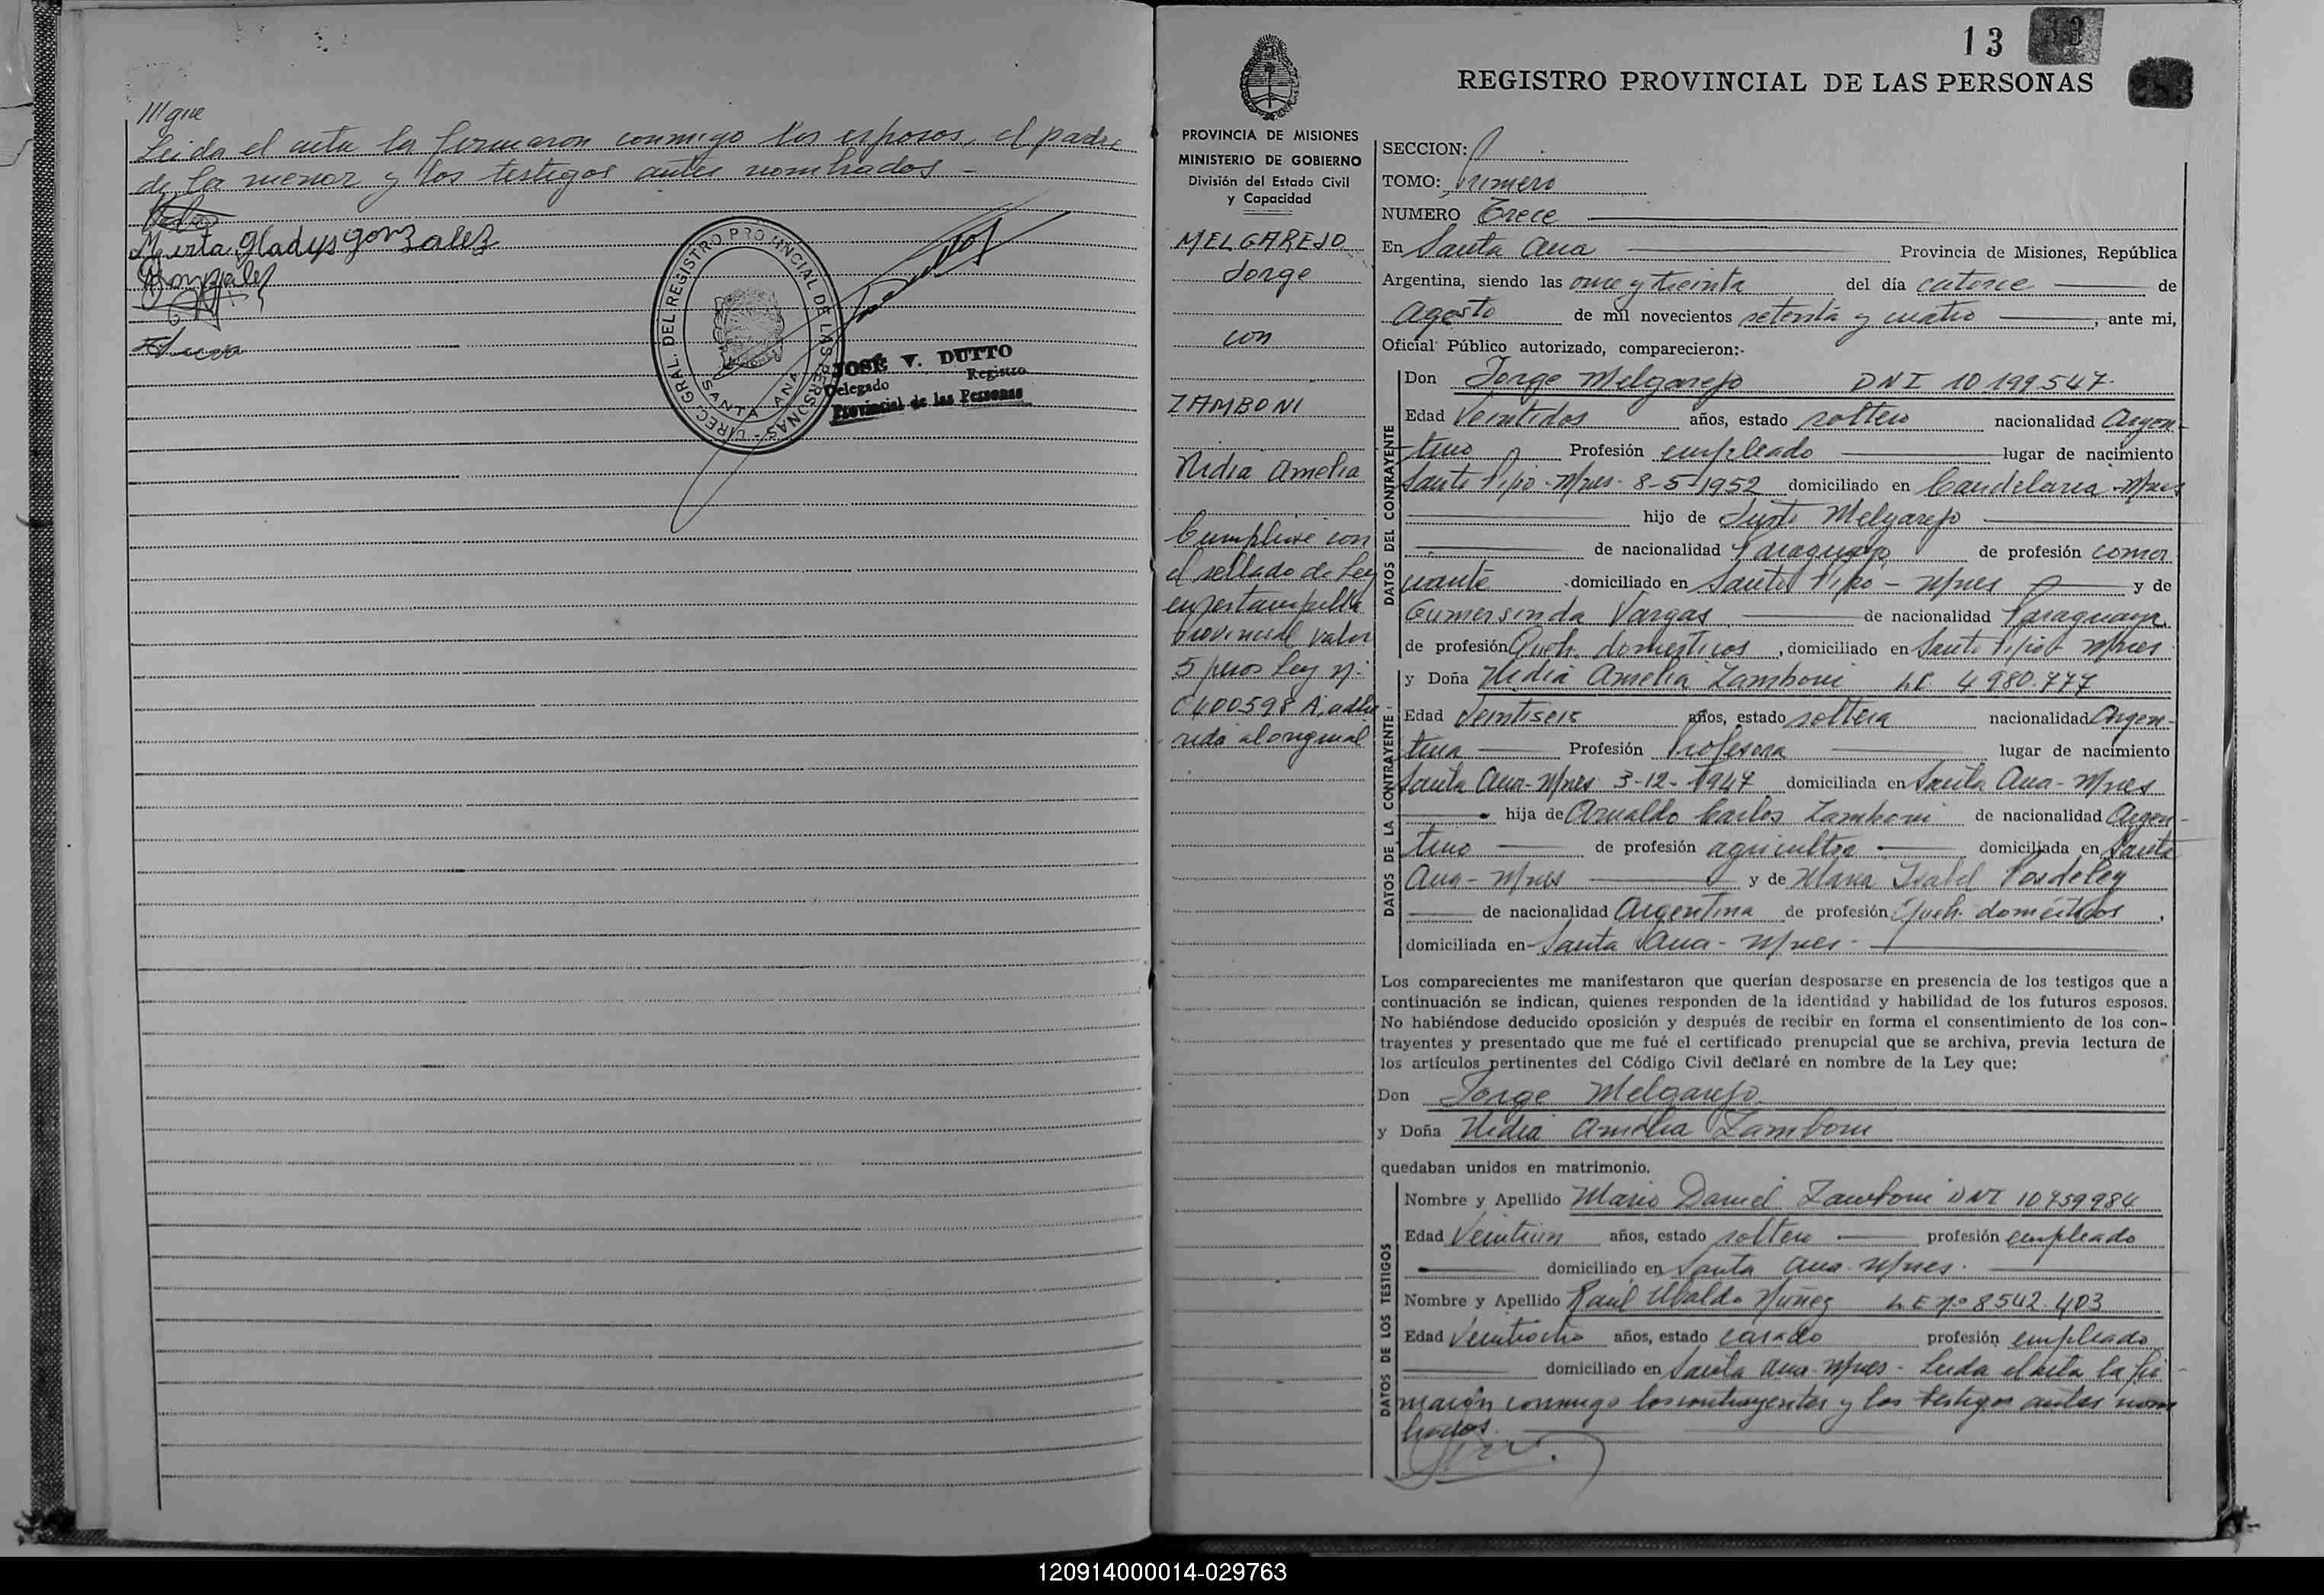 ///que
Leida el acta la firmaron conmigo los esposos, el padre
de la menor y los testigos antes nombrados -
Mirta Gladys gonzalez
Gonzalez
DIREC. GRAL. DEL REGISTRO PROVINCIAL DE LAS PERSONAS
SANTA ANA
JOSÉ V. DUTTO
Delegado Registro
Provincial de las Personas
13
REGISTRO PROVINCIAL DE LAS PERSONAS
PROVINCIA DE MISIONES
MINISTERIO DE GOBIERNO
División del Estado Civil
y Capacidad
MELGAREJO
Jorge
con
ZAMBONI
Nidia Amelia
Cumplise con
el sellado de Ley
en estampilla
provincial valor
5 pesos Ley Nº
0400598 A, adhe
rida al original
SECCION:
TOMO: Primero
NUMERO Trece
En Santa Ana Provincia de Misiones, República
Argentina, siendo las once y treinta del día catorce de
Agosto de mil novecientos setenta y cuatro, ante mi,
Oficial Público autorizado, comparecieron:-
DATOS DEL CONTRAYENTE
Don Jorge Melgarejo DNI 10.199.547-
Edad Veintidos años, estado soltero nacionalidad Argen-
tino Profesión empleado lugar de nacimiento
Santo Pipó - Mnes - 8-5-1952 domiciliado en Candelaria - Mnes
hijo de Justo Melgarejo
de nacionalidad Paraguayo de profesión comer
ciante domiciliado en Santo Pipó - Mnes y de
Gumersinda Vargas de nacionalidad Paraguaya
de profesión Queh. domesticos, domiciliado en Santo Pipó Mnes
DATOS DE LA CONTRAYENTE
y Doña Nidia Amelia Zamboni LC 4.980.777
Edad Veintiseis años, estado soltera nacionalidad Argen-
tina Profesión Profesora lugar de nacimiento
Santa Ana - Mnes 3-12-1947 domiciliada en Santa Ana - Mnes
hija de Arnaldo Carlos Zamboni de nacionalidad Argen-
tino de profesión agricultor domiciliada en Santa
Ana - Mnes y de Maria Isabel Posdeley
de nacionalidad Argentina de profesión Queh. domésticos,
domiciliada en Santa Ana - Mnes -
Los comparecientes me manifestaron que querían desposarse en presencia de los testigos que a
continuación se indican, quienes responden de la identidad y habilidad de los futuros esposos.
No habiéndose deducido oposición y después de recibir en forma el consentimiento de los con-
trayentes y presentado que me fué el certificado prenupcial que se archiva, previa lectura de
los artículos pertinentes del Código Civil declaré en nombre de la Ley que:
Don Jorge Melgarejo
y Doña Nidia Amelia Zamboni
quedaban unidos en matrimonio.
DATOS DE LOS TESTIGOS
Nombre y Apellido Mario Daniel Zamboni DNI 10959984
Edad Veintiun años, estado soltero profesión empleado
domiciliado en Santa Ana - Mnes.
Nombre y Apellido Raúl Ubaldo Nuñez L E Nº 8542.403
Edad Veintiocho años, estado casado profesión empleado
domiciliado en Santa Ana - Mnes - Leida el acta la fir
maron conmigo los contrayentes y los testigos antes nom
brados.
120914000014-029763